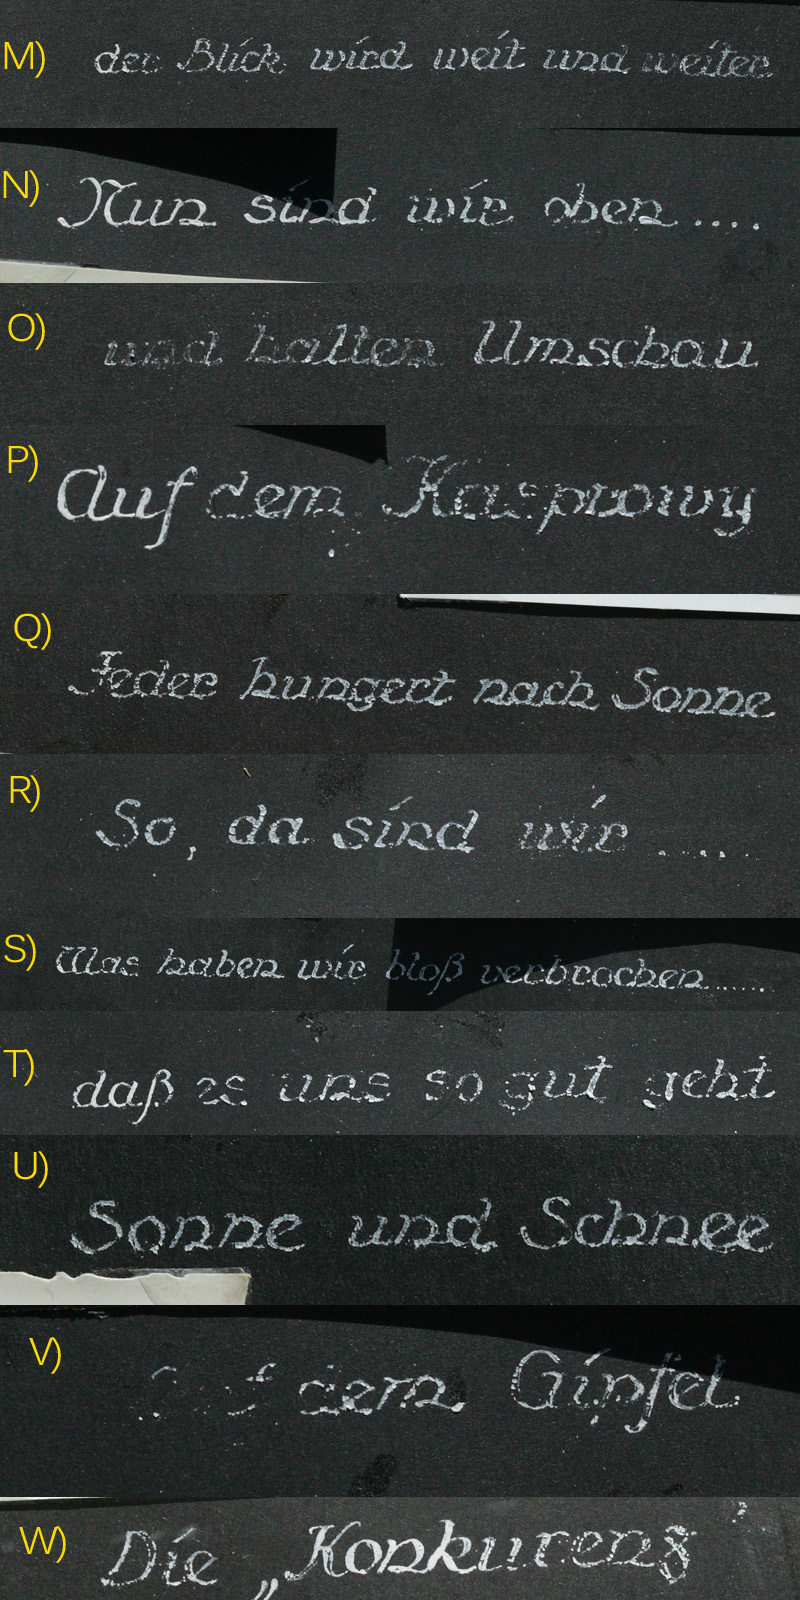 M) der Blick wird weit und weiter
N) Nun sind wir oben ....
O) und halten Umschau
P) Auf dem Kasprowy
Q) Jeder hungert nach Sonne
R) So, da sind wir .....
S) Was haben wir bloß verbrochen.......
T) daß es uns so gut geht
U) Sonne und Schnee
V) Auf dem Gipfel
W) Die „Konkurenz